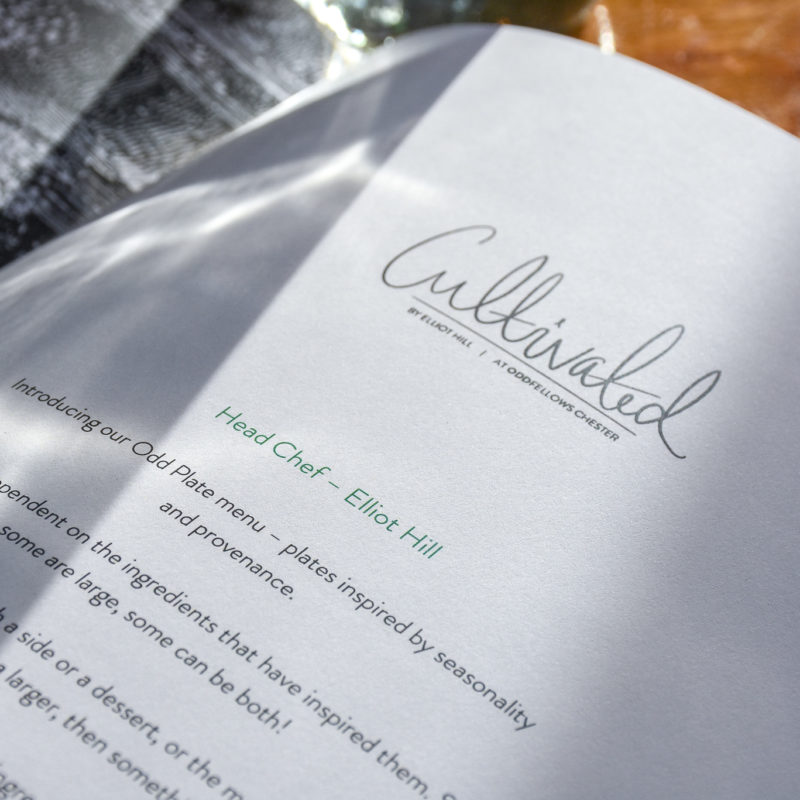 Cultivated
BY ELLIOT HILL | AT ODDFELLOWS CHESTER
Head Chef – Elliot Hill
Introducing our Odd Plate menu – plates inspired by seasonality
and provenance.
on the ingredients that have inspired them.
some are large, some can be both!
a side or a dessert, or the
larger, then